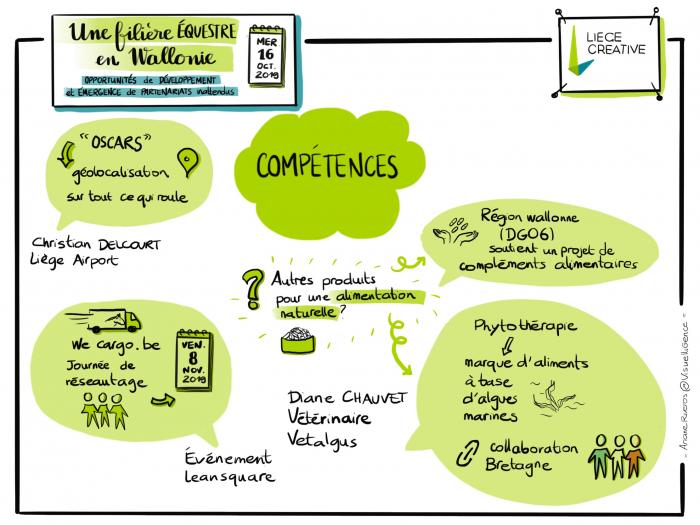 Une filière ÉQUESTRE
en Wallonie
OPPORTUNITÉS de DÉVELOPPEMENT
et ÉMERGENCE de PARTENARIATS inattendus
MER
16
OCT.
2019
LIEGE
CREATIVE
"OSCARS"
géolocalisation
sur tout ce qui roule
Christian DELCOURT
Liège Airport
COMPÉTENCES
Région wallonne
(DGO6)
soutient un projet de
compléments alimentaires
? Autres produits
pour une alimentation
naturelle?
We cargo.be
Journée de
réseautage
VEN.
8
NOV.
2019
Événement
Leansquare
Diane CHAUVET
Vétérinaire
Vetalgus
Phytothérapie
marque d'aliments
à base
d'algues
marines
collaboration
Bretagne